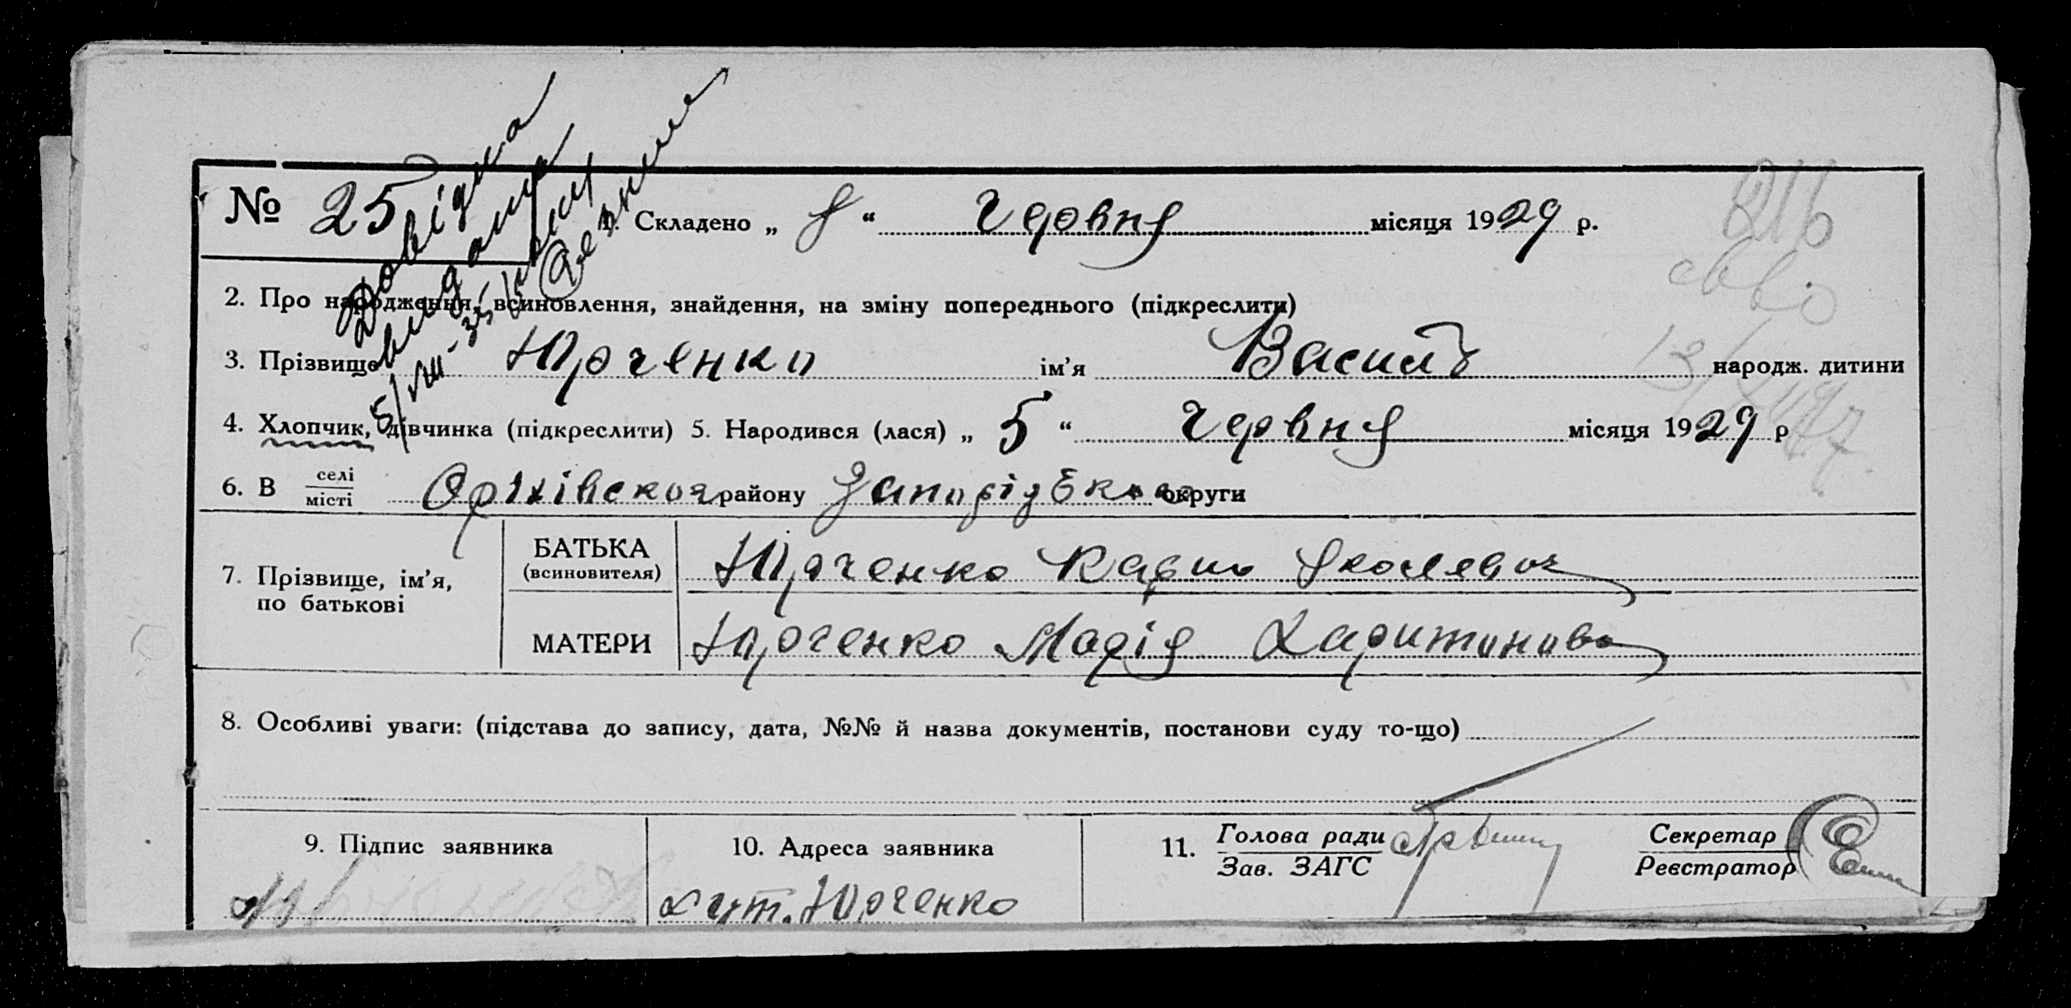 № 25
1. Складено „ 8 “ Червня місяця 1929 р.
2. Про народження, всиновлення, знайдення, на зміну попереднього (підкреслити)
3. Прізвище Юрченко ім’я Василь народж. дитини
4. Хлопчик, дівчинка (підкреслити) 5. Народився (лася) „ 5 “ Червня місяця 1929 р
6. В селі
місті Оріхівского району Запорізької округи
7. Прізвище, ім’я,
по батькові
БАТЬКА
(всиновителя)
Юрченко Карпо Яколевич
МАТЕРИ
Юрченко Марія Харитонова
8. Особливі уваги: (підстава до запису, дата, №№ й назва документів, постанови суду то-що)
9. Підпис заявника
10. Адреса заявника
хут. Юрченко
11. Голова ради
Зав. ЗАГС
Секретар
Реєстратор
Довідка
видана